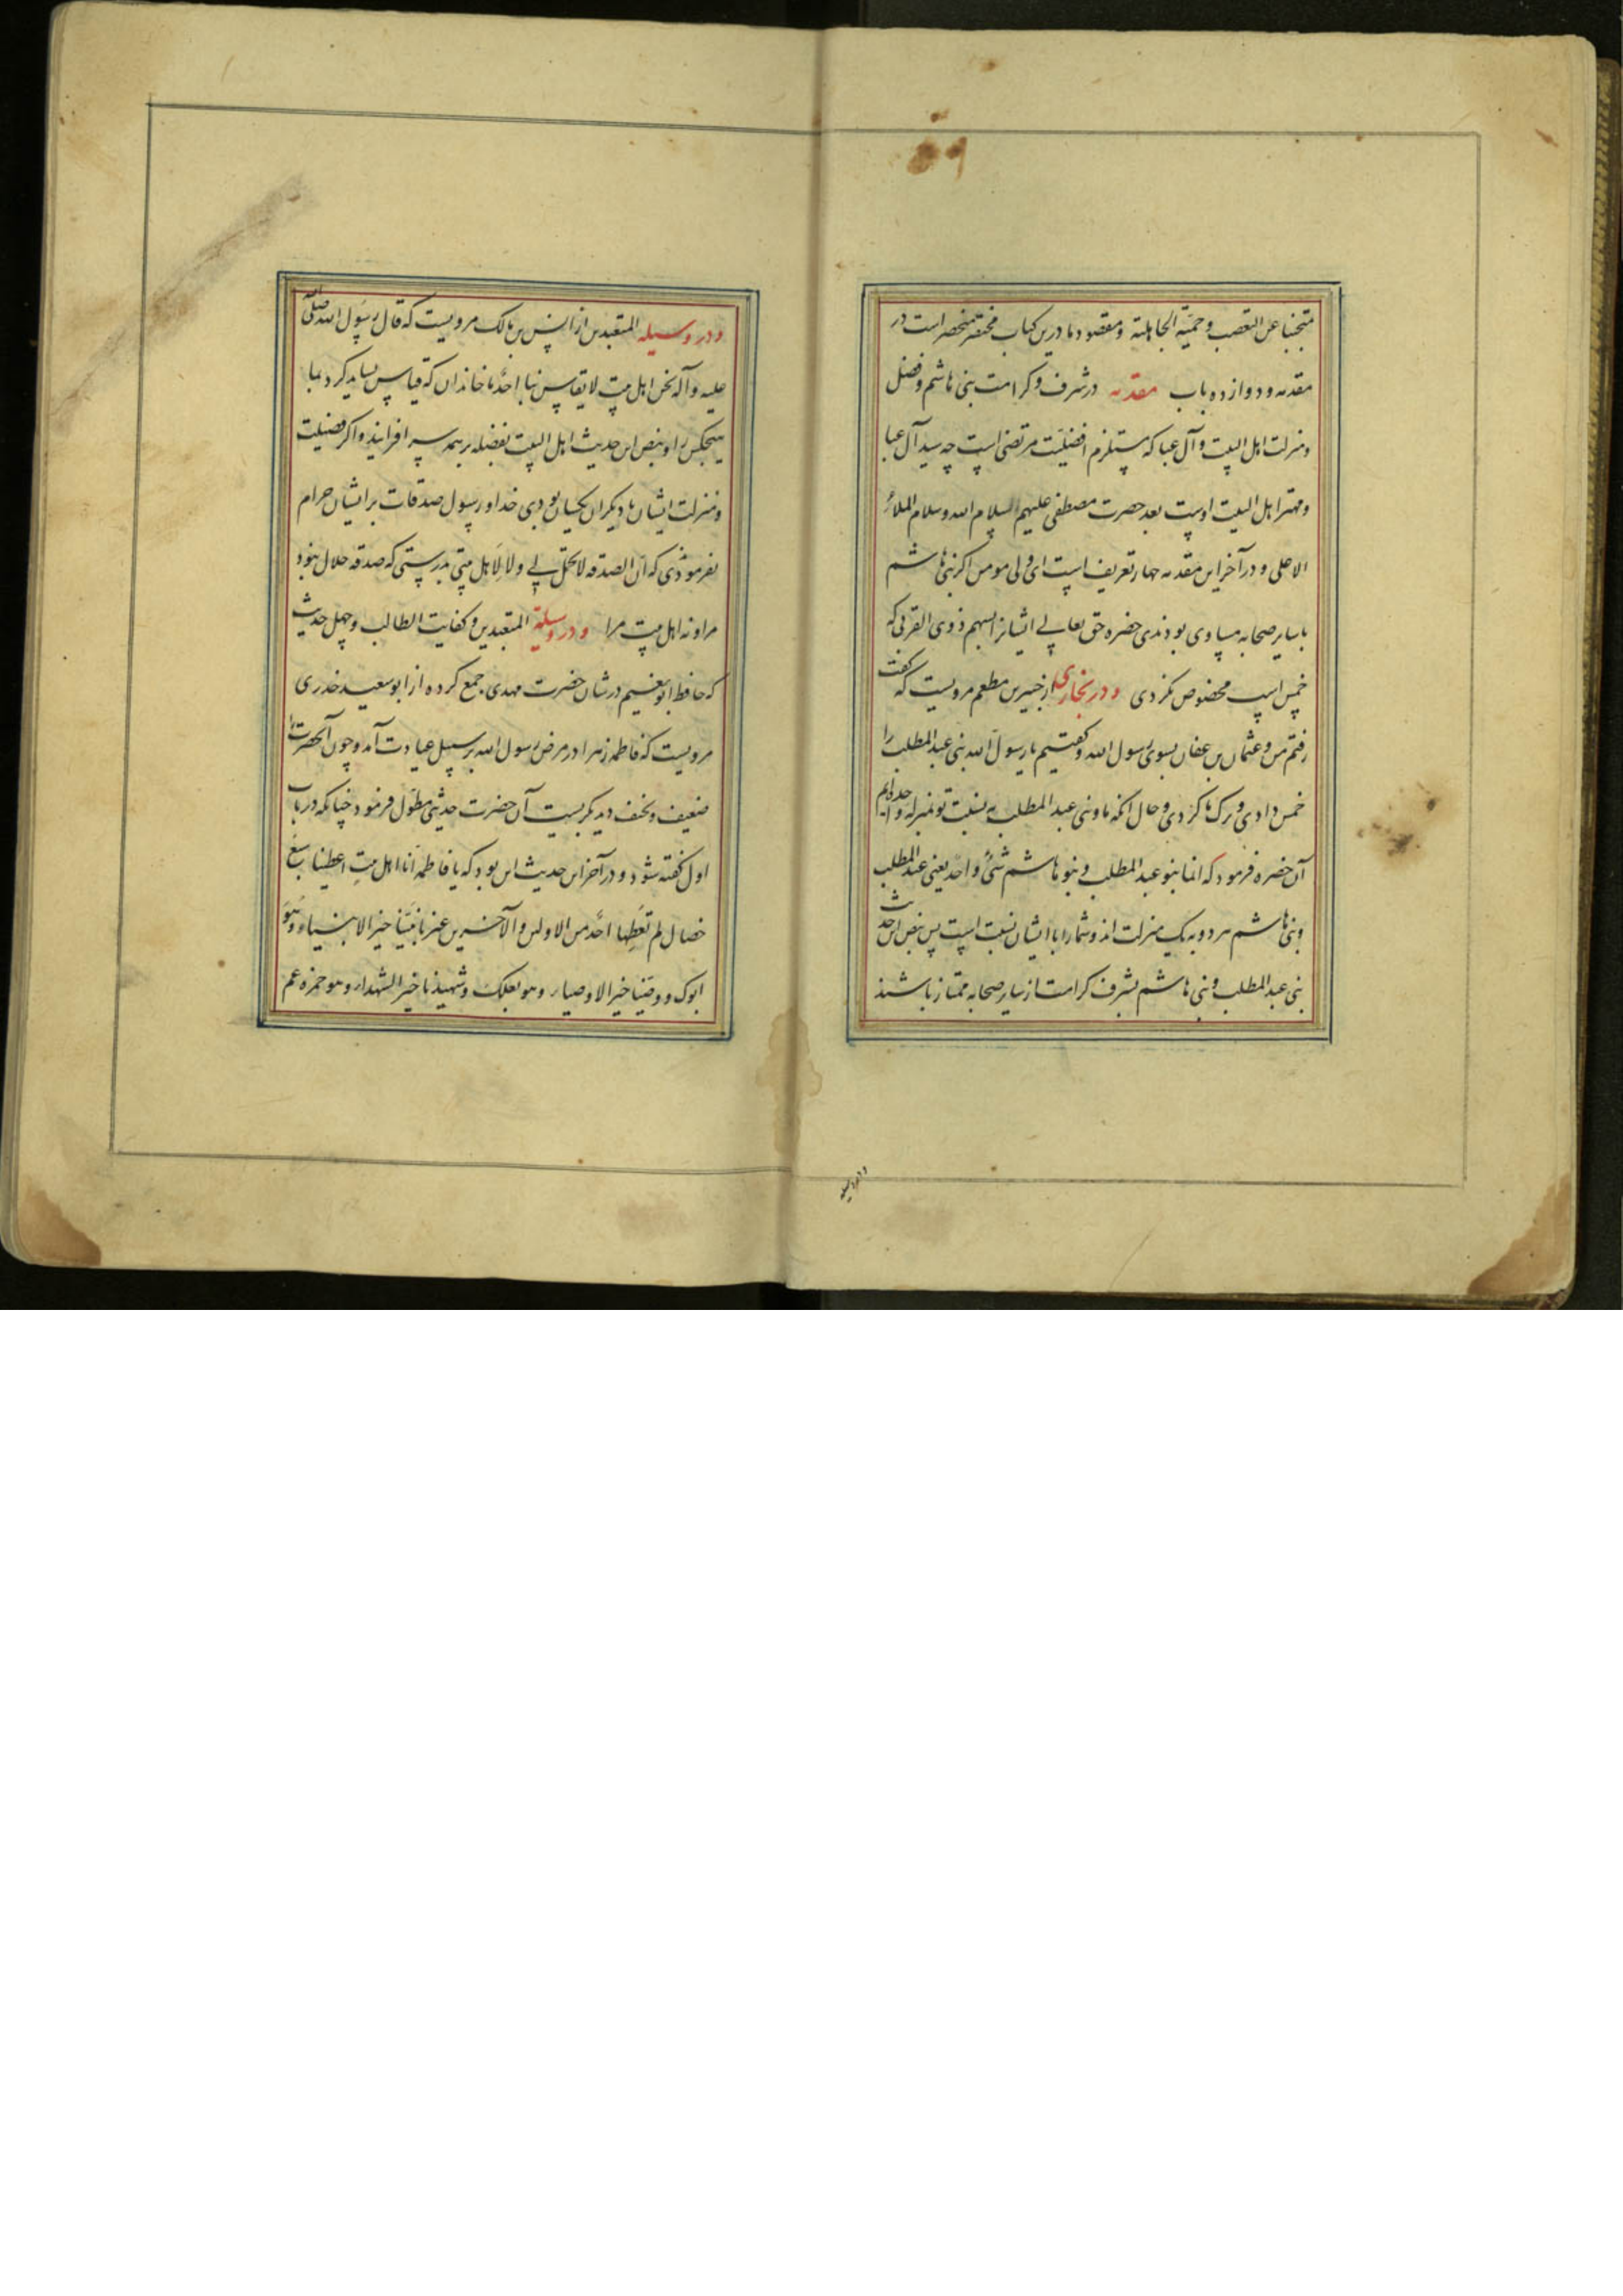 متجنبا عن التعصب و حمیة الجاهلیة و مقصود ما درین کتاب مختصر منحصر است در
مقدمه و دوازده باب مقدمه در شرف و کرامت بنی هاشم و فضل
و منزلت اهل البیت و آل عبا که مستلزم افضلیت مرتضی است چه سید آل عبا
و مهتر اهل البیت اوست بعد حضرت مصطفی علیهم السلام الله و سلام الملاء
الاعلی و در آخر این مقدمه چهار تعریف است ای ولی مومن اکر بنی هاشم
با سایر صحابه مساوی بودندی حضره حق تعالی ایشانرا بسهم ذوی القربی که
خمس است مخصوص نکردی و در بخاری از جبیر بن مطعم مرویست که گفت
رفتم من و عثمان بن عفان بسوی رسول الله و کفتیم یا رسول الله بنی عبد المطلب را
خمس دادی و ترک ما کردی و حال انکه ما و بنی عبد المطلب به نسبت تو بمنزله واحده ایم
آن حضره فرمود که انما بنو عبد المطلب و بنو هاشم شیٔ واحد یعنی عبد المطلب
و بنی هاشم هر دو به یک منزلت اند و شما را با ایشان نسبت است پس بنص این حدیث
بنی عبد المطلب و بنی هاشم بشرف کرامت از سایر صحابه ممتاز باشند
و در وسیله
و در وسیله المتعبدین از انس بن مالک مرویست که قال رسول الله صلی الله
علیه و آله نحن اهل بیت لا یقاس بنا احد ما خاندان که قیاس نباید کرد بما
هیچکس را و بنص این حدیث اهل البیت بفضله بر همه سر افرازند و اکر فضیلت
و منزلت ایشان با دیکران یکسان بودی خدا و رسول صدقات بر ایشان حرام
نفرمودی که ان الصدقه لا تحل لی و لا لاهل بیتی بدرستی که صدقه حلال نبود
مرا و نه اهل بیت مرا و در وسیلة المتعبدین و کفایت الطالب و چهل حدیث
که حافظ ابو نعیم در شان حضرت مهدی جمع کرده از ابو سعید خدری
مرویست که فاطمه زهرا در مرض رسول الله بر سبیل عیادت آمد و چون آنحضرت را
ضعیف و نحیف دید بکریست آن حضرت حدیثی مطول فرمود چنانکه در باب
اول کفته شود و در آخر این حدیث این بود که یا فاطمه انا اهل بیت اعطینا سبع
خصال لم تعطها احد من الاولین و الآخرین غیرنا نبینا خیر الانبیاء و هو
ابوک و وصینا خیر الاوصیاء و هو بعلک و شهیدنا خیر الشهداء و هو حمزه عم